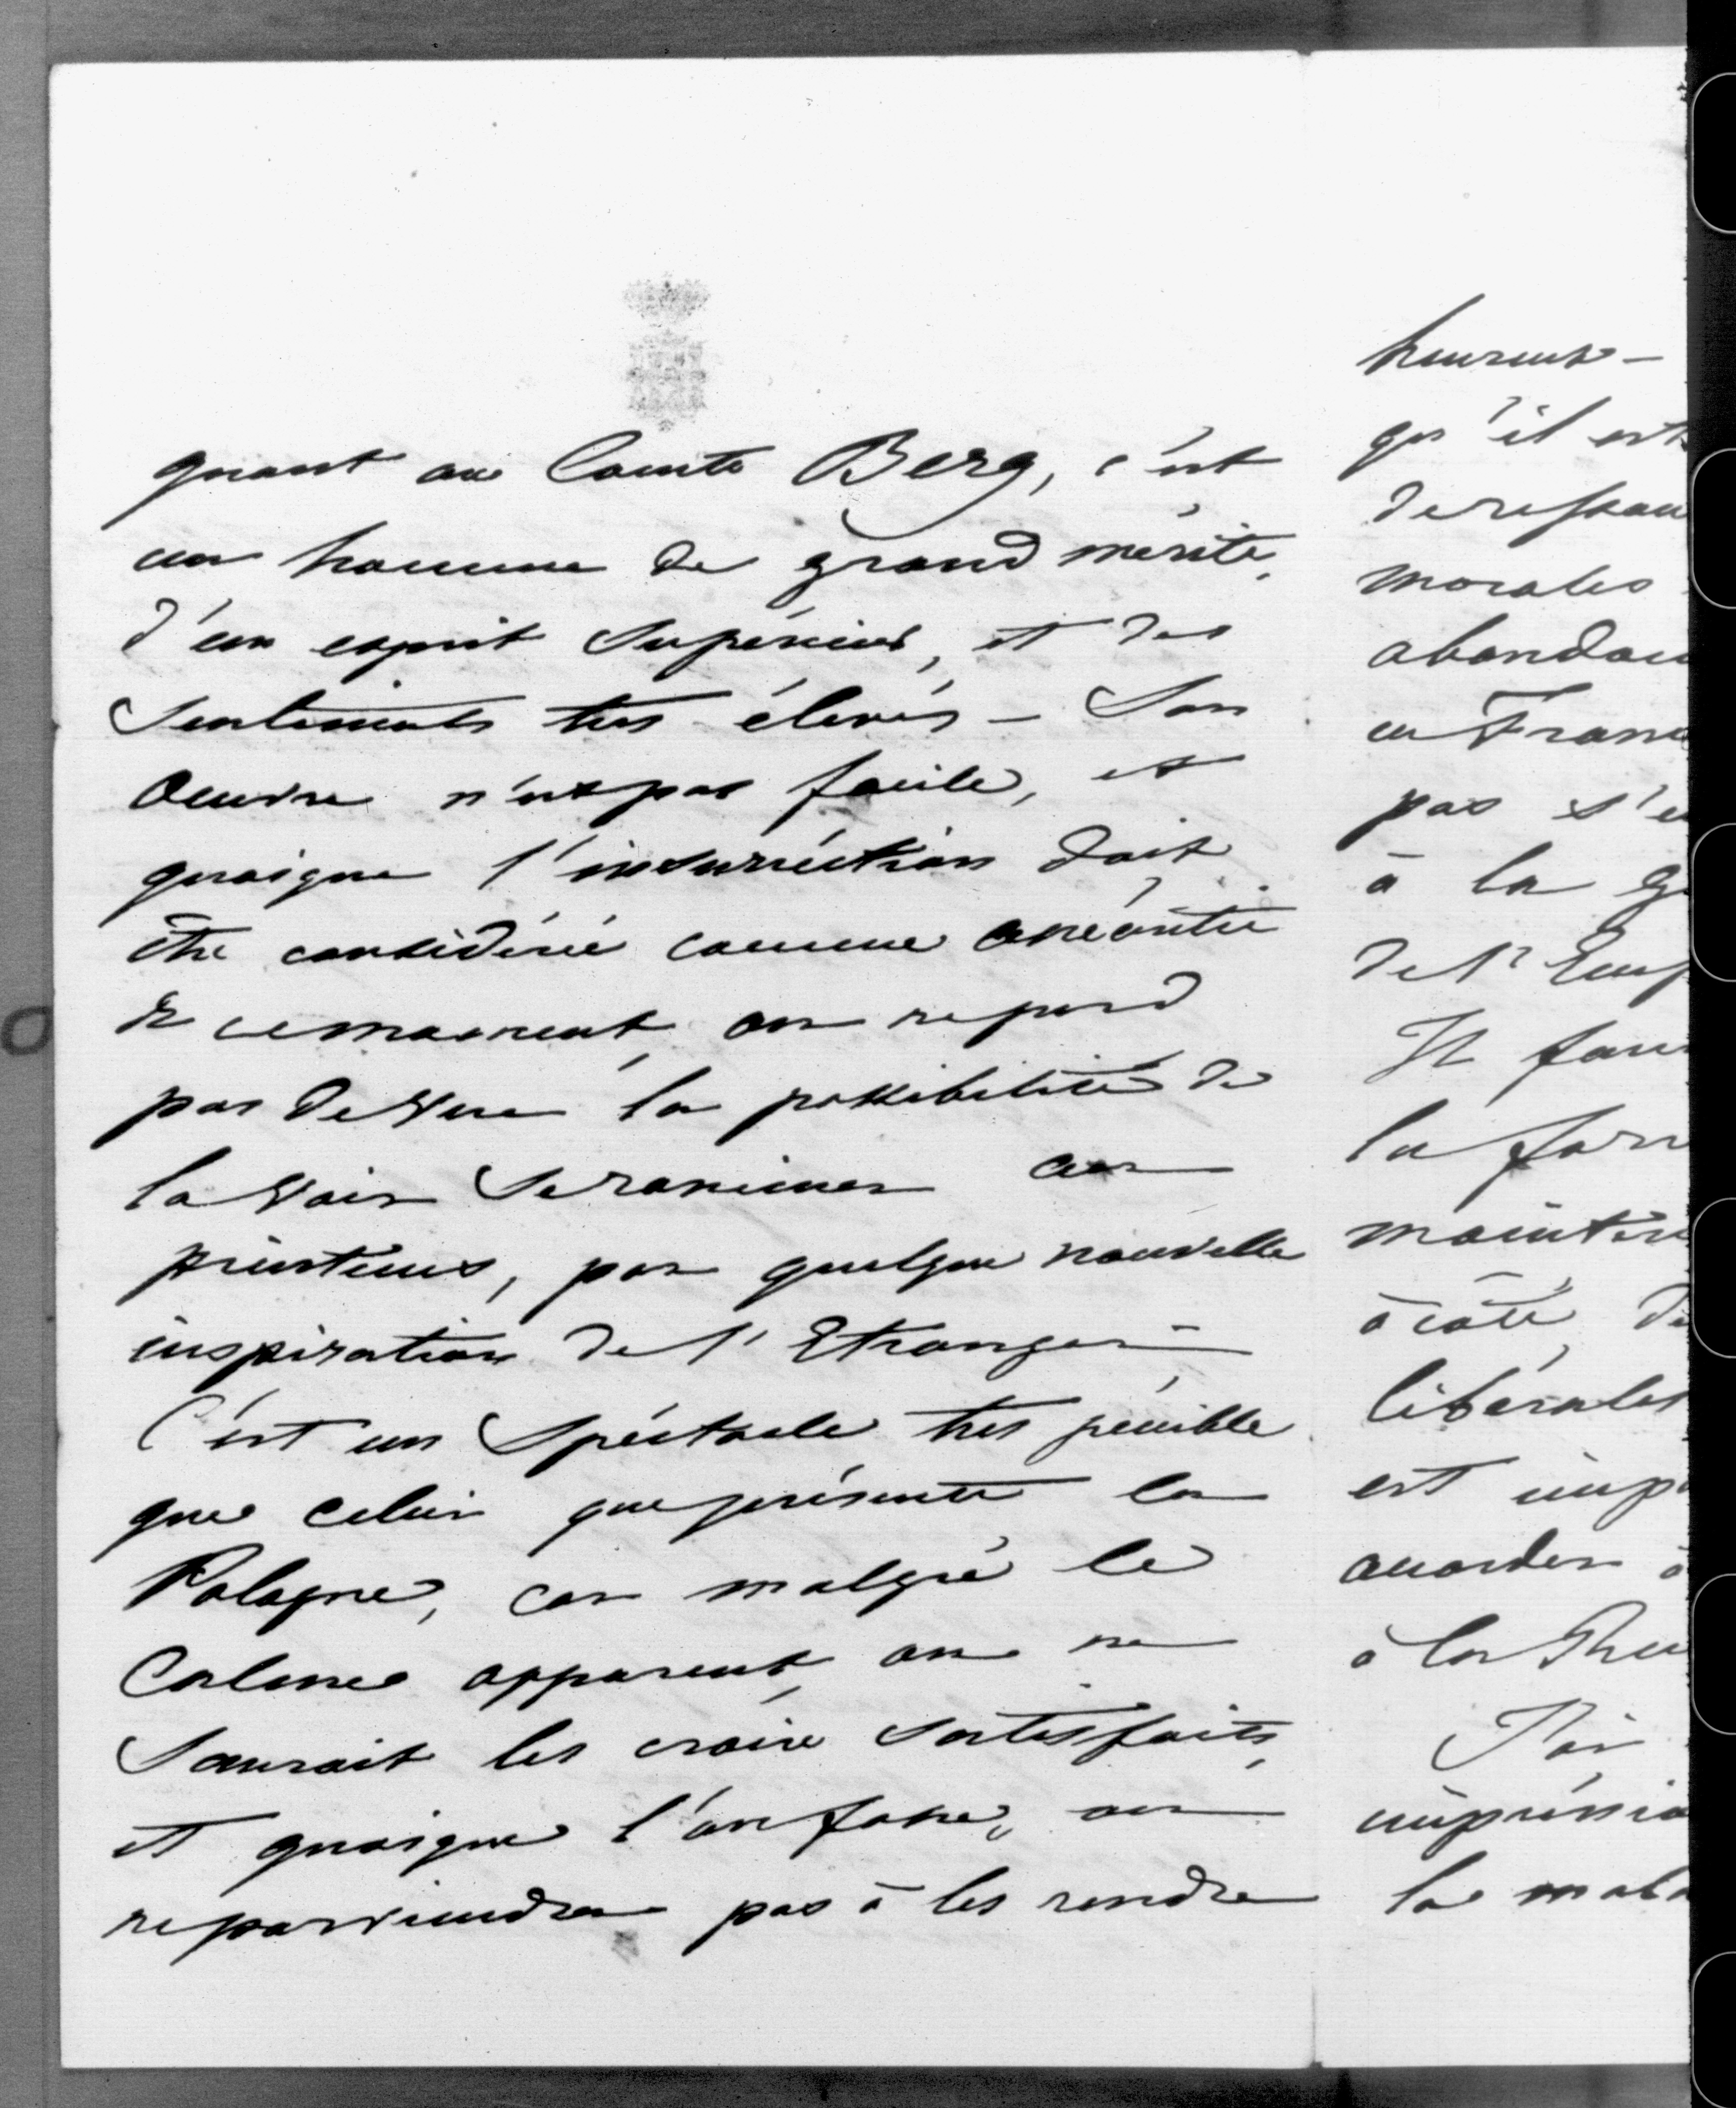 quant au Comte Berg, c'est
un homme de grand mérite,
d'un esprit supérieur, et des
Sentiments très élevés – Son
Oeuvre n'est pas facile, et
quoique l'insurréction doit
être considérée comme anéantie
en ce moment, on ne perd
pas de vue la possibilité de
la voir se ranimer au
printems, par quelque nouvelle
inspiration de l'Etranger –
C'est un Spéctacle très pénible
que celui que présente la
Pologne, car malgré le
Calme apparent, on ne
Saurait les croire satisfaits,
et quoique l'on fasse, on
ne parviendra pas à les rendre
heureux –
qu'il est
de
morales
abandon
en Fran
pas s'e
à la g
de l'Emp
Il fau
la for
mainten
à côté d
libérales
est imp
accorder à
à la Ru
J'ai
impréssio
la mala